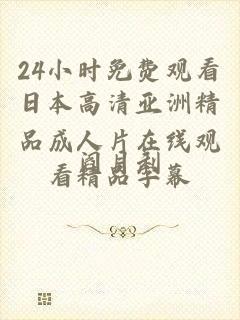 24小时免费观看
日本高清亚洲精
品成人片在线观
看精品字幕
阎月刹